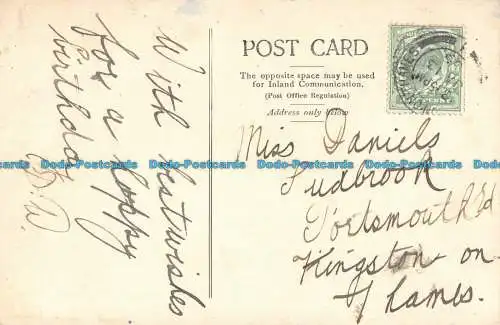 With bestwishes
for a Happy
birthday
D. W.
POST CARD
The opposite space may be used
for Inland Communication.
(Post Office Regulation)
Address only below
Miss Daniels
Tudbrook
Portsmouth Rd
Kingston - on -
Thames.
Dodo-Postcards Dodo-Postcards Dodo-Postcards Dodo-Postcards Dodo-Postcards Dodo-Postcards